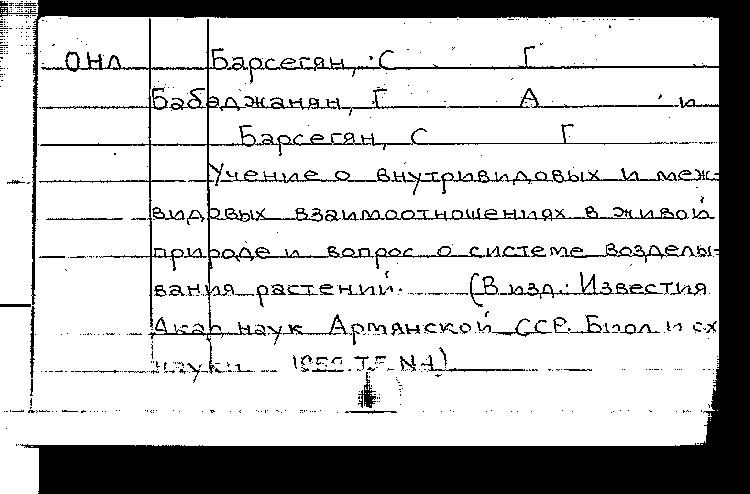 ОНЛ Барсегян, С Г
Бабаджанян, Г А и
Барсегян, С Г
Учение о внутривидовых и меж-
видовых взаимоотношениях в живой
природе и вопрос о системе возделы-
вания растений. (В изд.: Известия
Акад наук Армянской ССР. Биол и сх
науки Т. N 1)